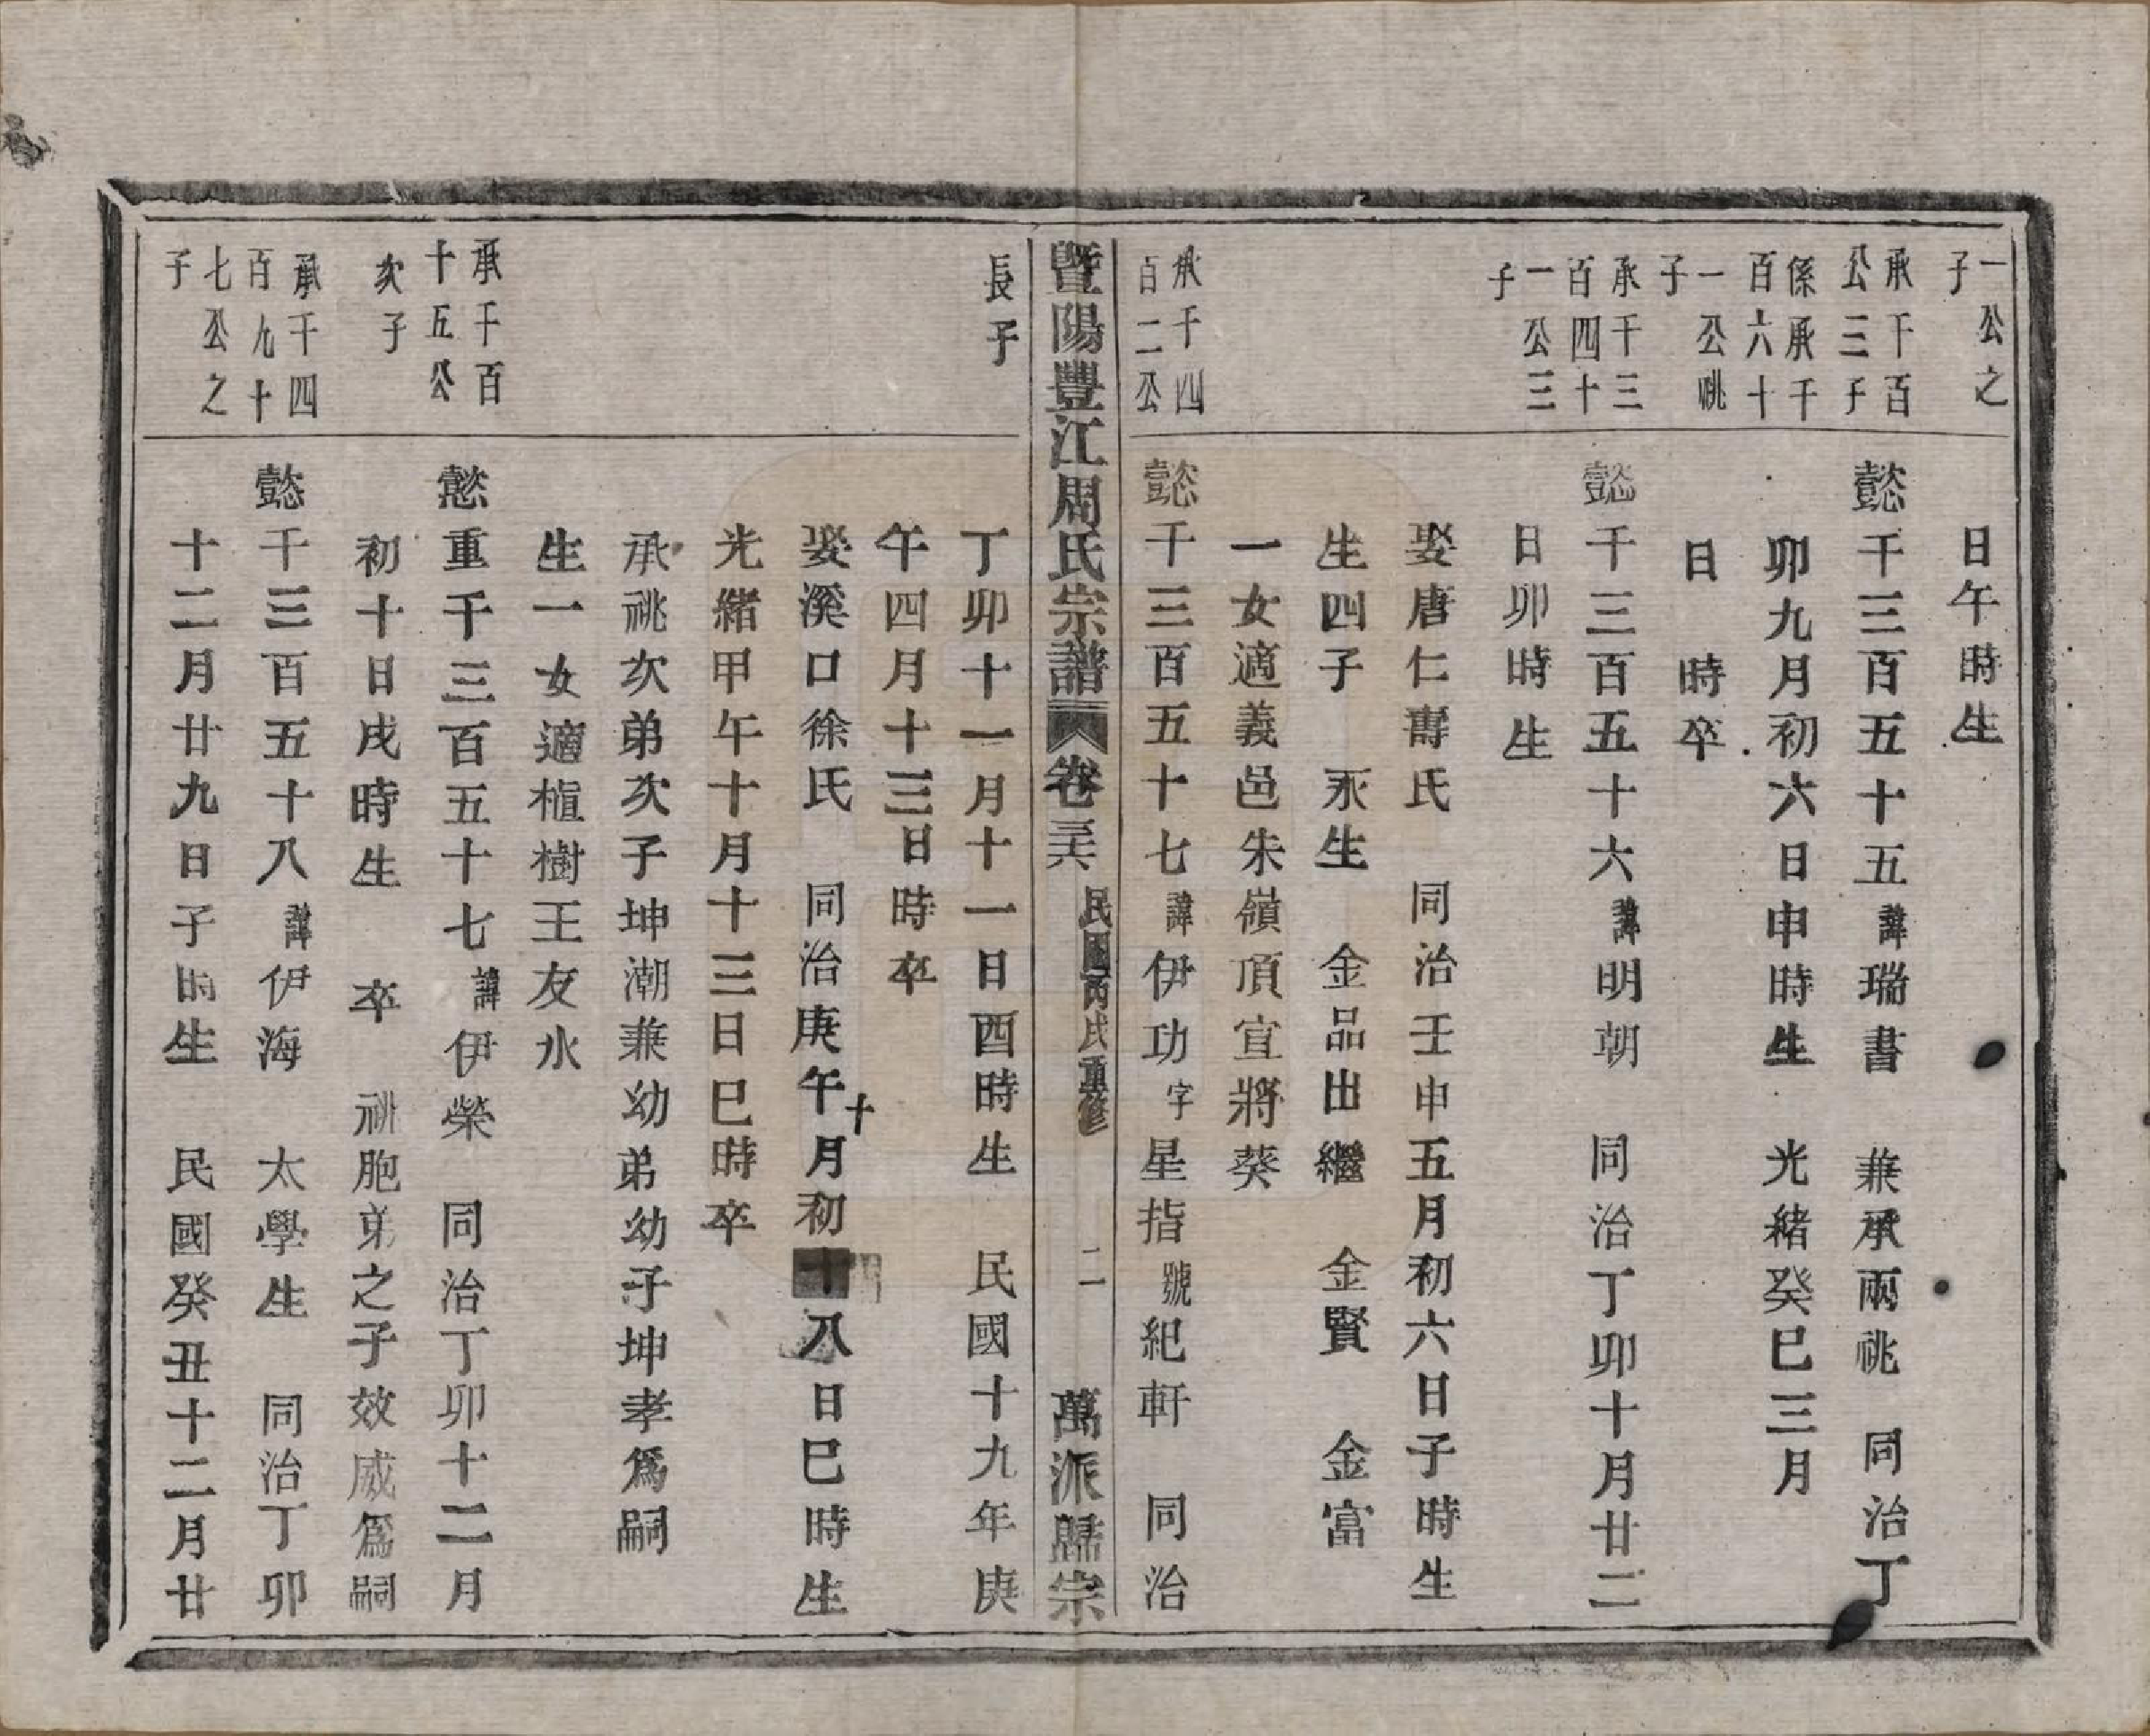 一公之
子
日午時生
承千百
公三子
係承千
百六十
一公祧
子
懿千三百五十五諱瑞書 兼承兩祧 同治丁
卯九月初六日申時生 光緒癸巳三月
日 時卒
承千三
百四十
一公三
子
懿千三百五十六諱明朝 同治丁卯十月廿二
日卯時生
娶唐仁壽氏 同治壬申五月初六日子時生
生四子 永生 金品出繼 金賢 金富
一女適義邑朱嶺頂宣將葵
承千四
百二公
懿千三百五十七諱伊功字星指號紀軒 同治
暨陽豐江周氏宗譜 卷三六 民國丙戌重修 二 萬派歸宗
長子
丁卯十一月十一日酉時生 民國十九年庚
午四月十三日時卒
娶溪口徐氏 同治庚午十月初八日巳時生
光緒甲午十月十三日巳時卒
承祧次弟次子坤潮兼幼弟幼子坤孝爲嗣
生一女適樝樹王友水
承千百
十五公
次子
懿重千三百五十七諱伊榮 同治丁卯十二月
初十日戌時生 卒 祧胞弟之子效威爲嗣
承千四
百九十
七公之
子
懿千三百五十八諱伊海 太學生 同治丁卯
十二月廿九日子時生 民國癸丑十二月廿